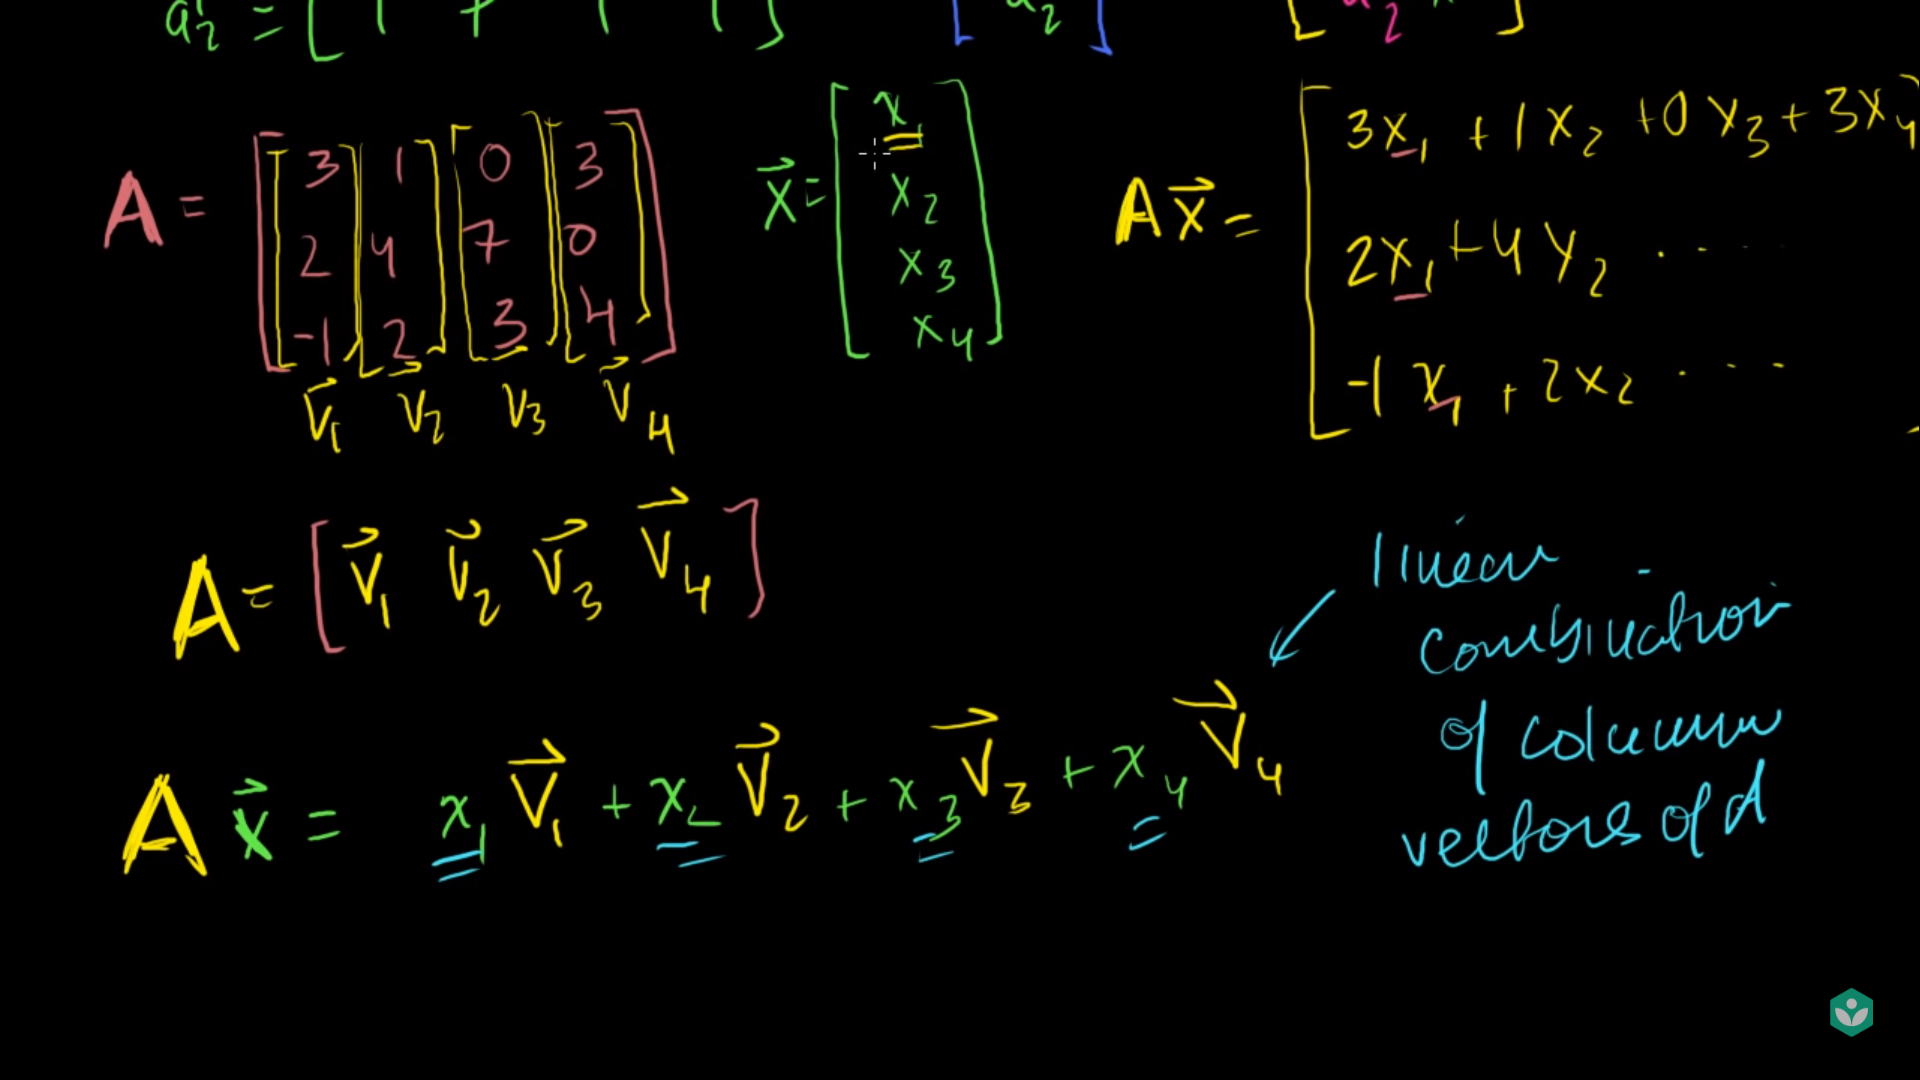 a⃗₂ = [ ] [ a₂ ] [ a₂ ]
A = [ 3 1 0 3
2 4 7 0
-1 2 3 4 ]
v⃗₁ v⃗₂ v₃ v⃗₄
x⃗ = [ x₁
x₂
x₃
x₄ ]
Ax⃗ = [ 3x₁ + 1x₂ + 0x₃ + 3x₄
2x₁ + 4x₂ ....
-1x₁ + 2x₂ ...
A = [ v⃗₁ v⃗₂ v⃗₃ v⃗₄ ]
Ax⃗ = x₁v⃗₁ + x₂v⃗₂ + x₃v⃗₃ + x₄v⃗₄
linear
combination
of column
vectors of A